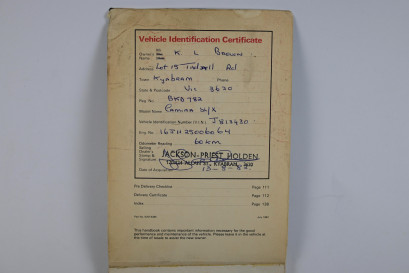 Vehicle Identification Certificate
Owner's Name K L Brown
Address Lot 15 Rd
Town Kyabram Phone
State & Postcode Vic 3620
Reg. No. BKD 782
Model Name Camira SL/X
Vehicle Identification Number (V.I.N.) J813430
Eng. No.
Odometer Reading 60km
Selling Dealer's Stamp & Signature JACKSON-PRIEST HOLDEN
KYABRAM, 3620
Date of Acquisition
Pre Delivery Checklist Page 111
Delivery Certificate Page 113
Index Page 120
This handbook contains important information necessary for the good
performance and maintenance of the vehicle. Please leave it in the vehicle at
the time of resale to assist the next owner.